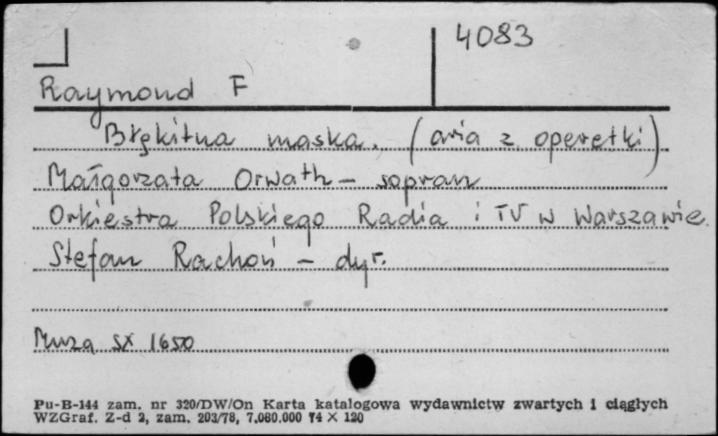 4083
Raymond F
Błękitna maska. (aria z operetki)
Małgorzata Orwath – sopran
Orkiestra Polskiego Radia i TV w Warszawie.
Stefan Rachoń – dyr.
Muza SX 1650
Pu-B-144 zam. nr 320/DW/On Karta katalogowa wydawnictw zwartych i ciągłych
WZGraf. Z-d 2, zam. 203/78, 7.080.000 74 × 120